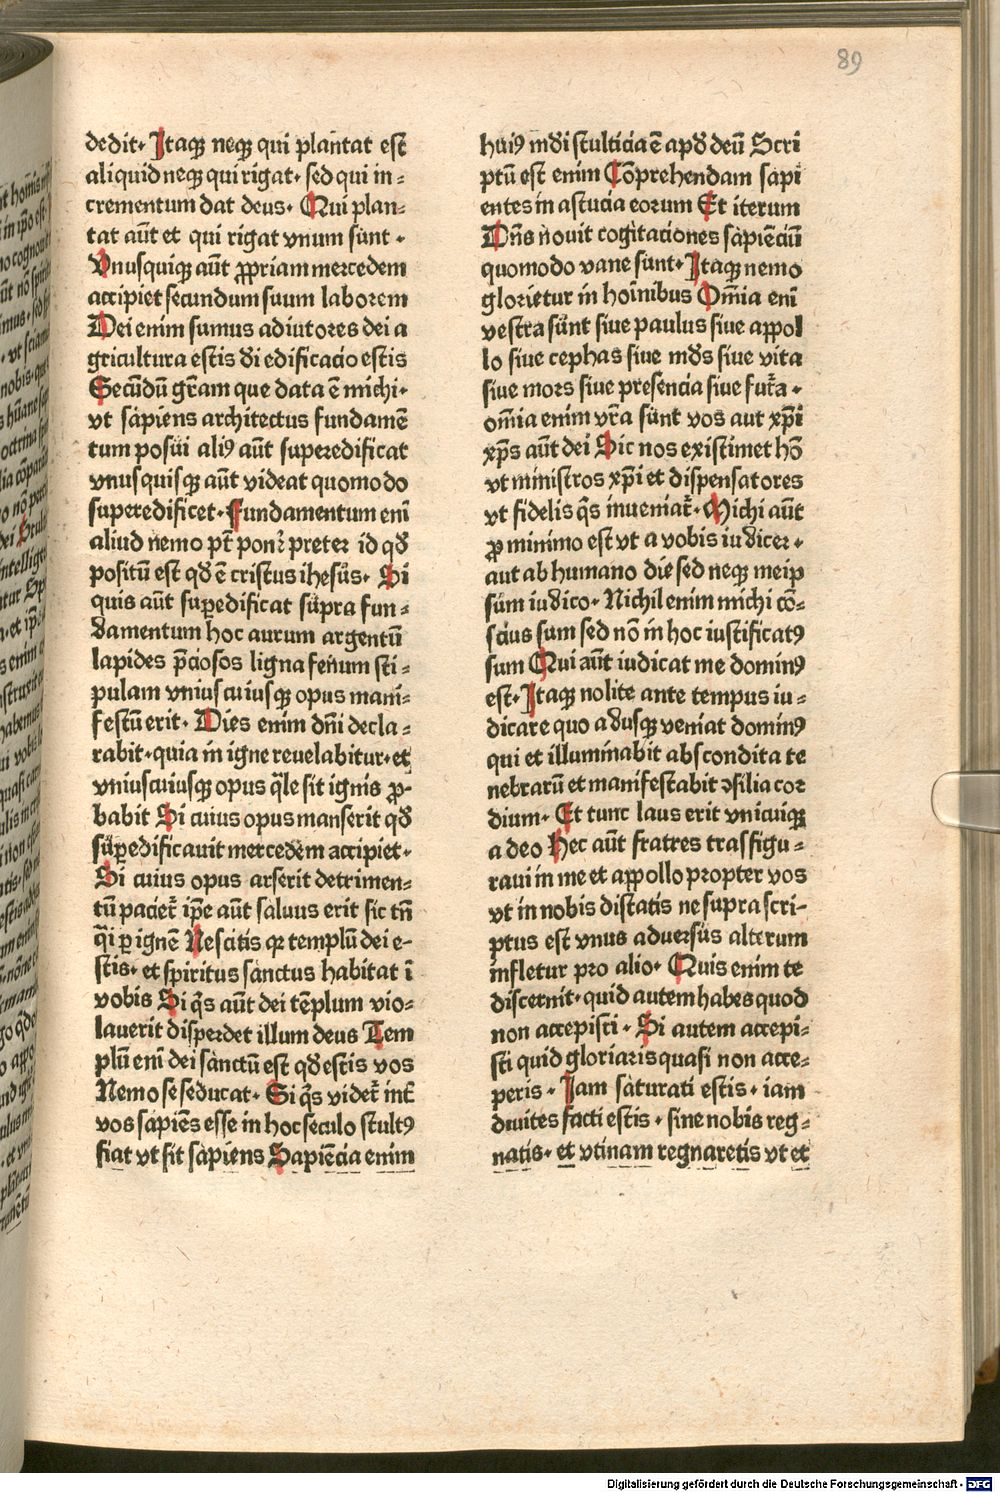 89
dedit· Itaqꝫ neqꝫ qui plantat est
aliquid neqꝫ qui rigat· sed qui in-
crementum dat deus· Qui plan-
tat aūt et qui rigat vnum sunt ·
Vnusquisqꝫ aūt ꝓpriam mercedem
accipiet secundum suum laborem
Dei enim sumus adiutores dei a
gricultura estis di edificacio estis
Secūdū grāam que data ē michi·
vt sapiens architectus fundamē
tum posui aliꝰ aūt superedificat
vnusquisqꝫ aūt videat quomodo
superedificet· Fundamentum enī
aliud nemo pt̄ ponꝛ̄ preter id qđ
positū est qđ ē cristus ihesus· Si
quis aūt suꝑedificat supra fun-
damentum hoc aurum argentū
lapides p̄ciosos ligna fenum sti-
pulam vniuscuiusqꝫ opus mani-
festū erit· Dies enim dn̄i decla-
rabit·quia in igne reuelabitur·et
vniuscuiusqꝫ opus q̄le sit ignis ꝓ-
babit Si cuius opus manserit qđ
suꝑedificauit mercedem accipiet·
Si cuius opus arserit detrimen-
tū pacieť ip̄e aūt saluus erit sic tn̄
q̄i ꝑ ignē Nescitis qꝛ templū dei e-
stis· et spiritus sanctus habitat ī
vobis Si q̄s aūt dei tēplum vio-
lauerit disperdet illum deus Tem
plū enī dei sanctū est qđ estis vos
Nemo se seducat· Si q̄s videť int̄
vos sapiēs esse in hoc seculo stultꝰ
fiat vt sit sapiens Sapiēcia enim
huiꝰ mđi stulticia ē apđ deū Scri
ptū est enim Cōprehendam sapi
entes in astucia eorum Et iterum
Dn̄s nouit cogitaciones sapiēciū
quomodo vane sunt· Itaqꝫ nemo
glorietur in hoīnibus Om̄ia enī
vestra sunt siue paulus siue appol
lo siue cephas siue mđs siue vita
siue mors siue presencia siue fut̄a ·
om̄ia enim vr̄a sunt vos aut xp̄i
xp̄s aūt dei Sic nos existimet hō
vt ministros xp̄i et dispensatores
vt fidelis q̄s inueniať· Michi aūt
ꝓ minimo est vt a vobis iudicer ·
aut ab humano die sed neqꝫ meip
sum iudico· Nichil enim michi cō-
scius sum sed nō in hoc iustificatꝰ
sum Qui aūt iudicat me dominꝰ
est· Itaqꝫ nolite ante tempus iu-
dicare quo adusqꝫ veniat dominꝰ
qui et illuminabit abscondita te
nebrarū et manifestabit ꝯsilia cor
dium· Et tunc laus erit vnicuiqꝫ
a deo Hec aūt fratres trasfigu-
raui in me et appollo propter vos
vt in nobis discatis ne supra scri-
ptus est vnus aduersus alterum
infletur pro alio· Quis enim te
discernit· quid autem habes quod
non accepisti · Si autem accepi-
sti quid gloriaris quasi non acce-
peris · Iam saturati estis · iam
diuites facti estis · sine nobis reg-
natis· et vtinam regnaretis vt et
Digitalisierung gefördert durch die Deutsche Forschungsgemeinschaft · DFG